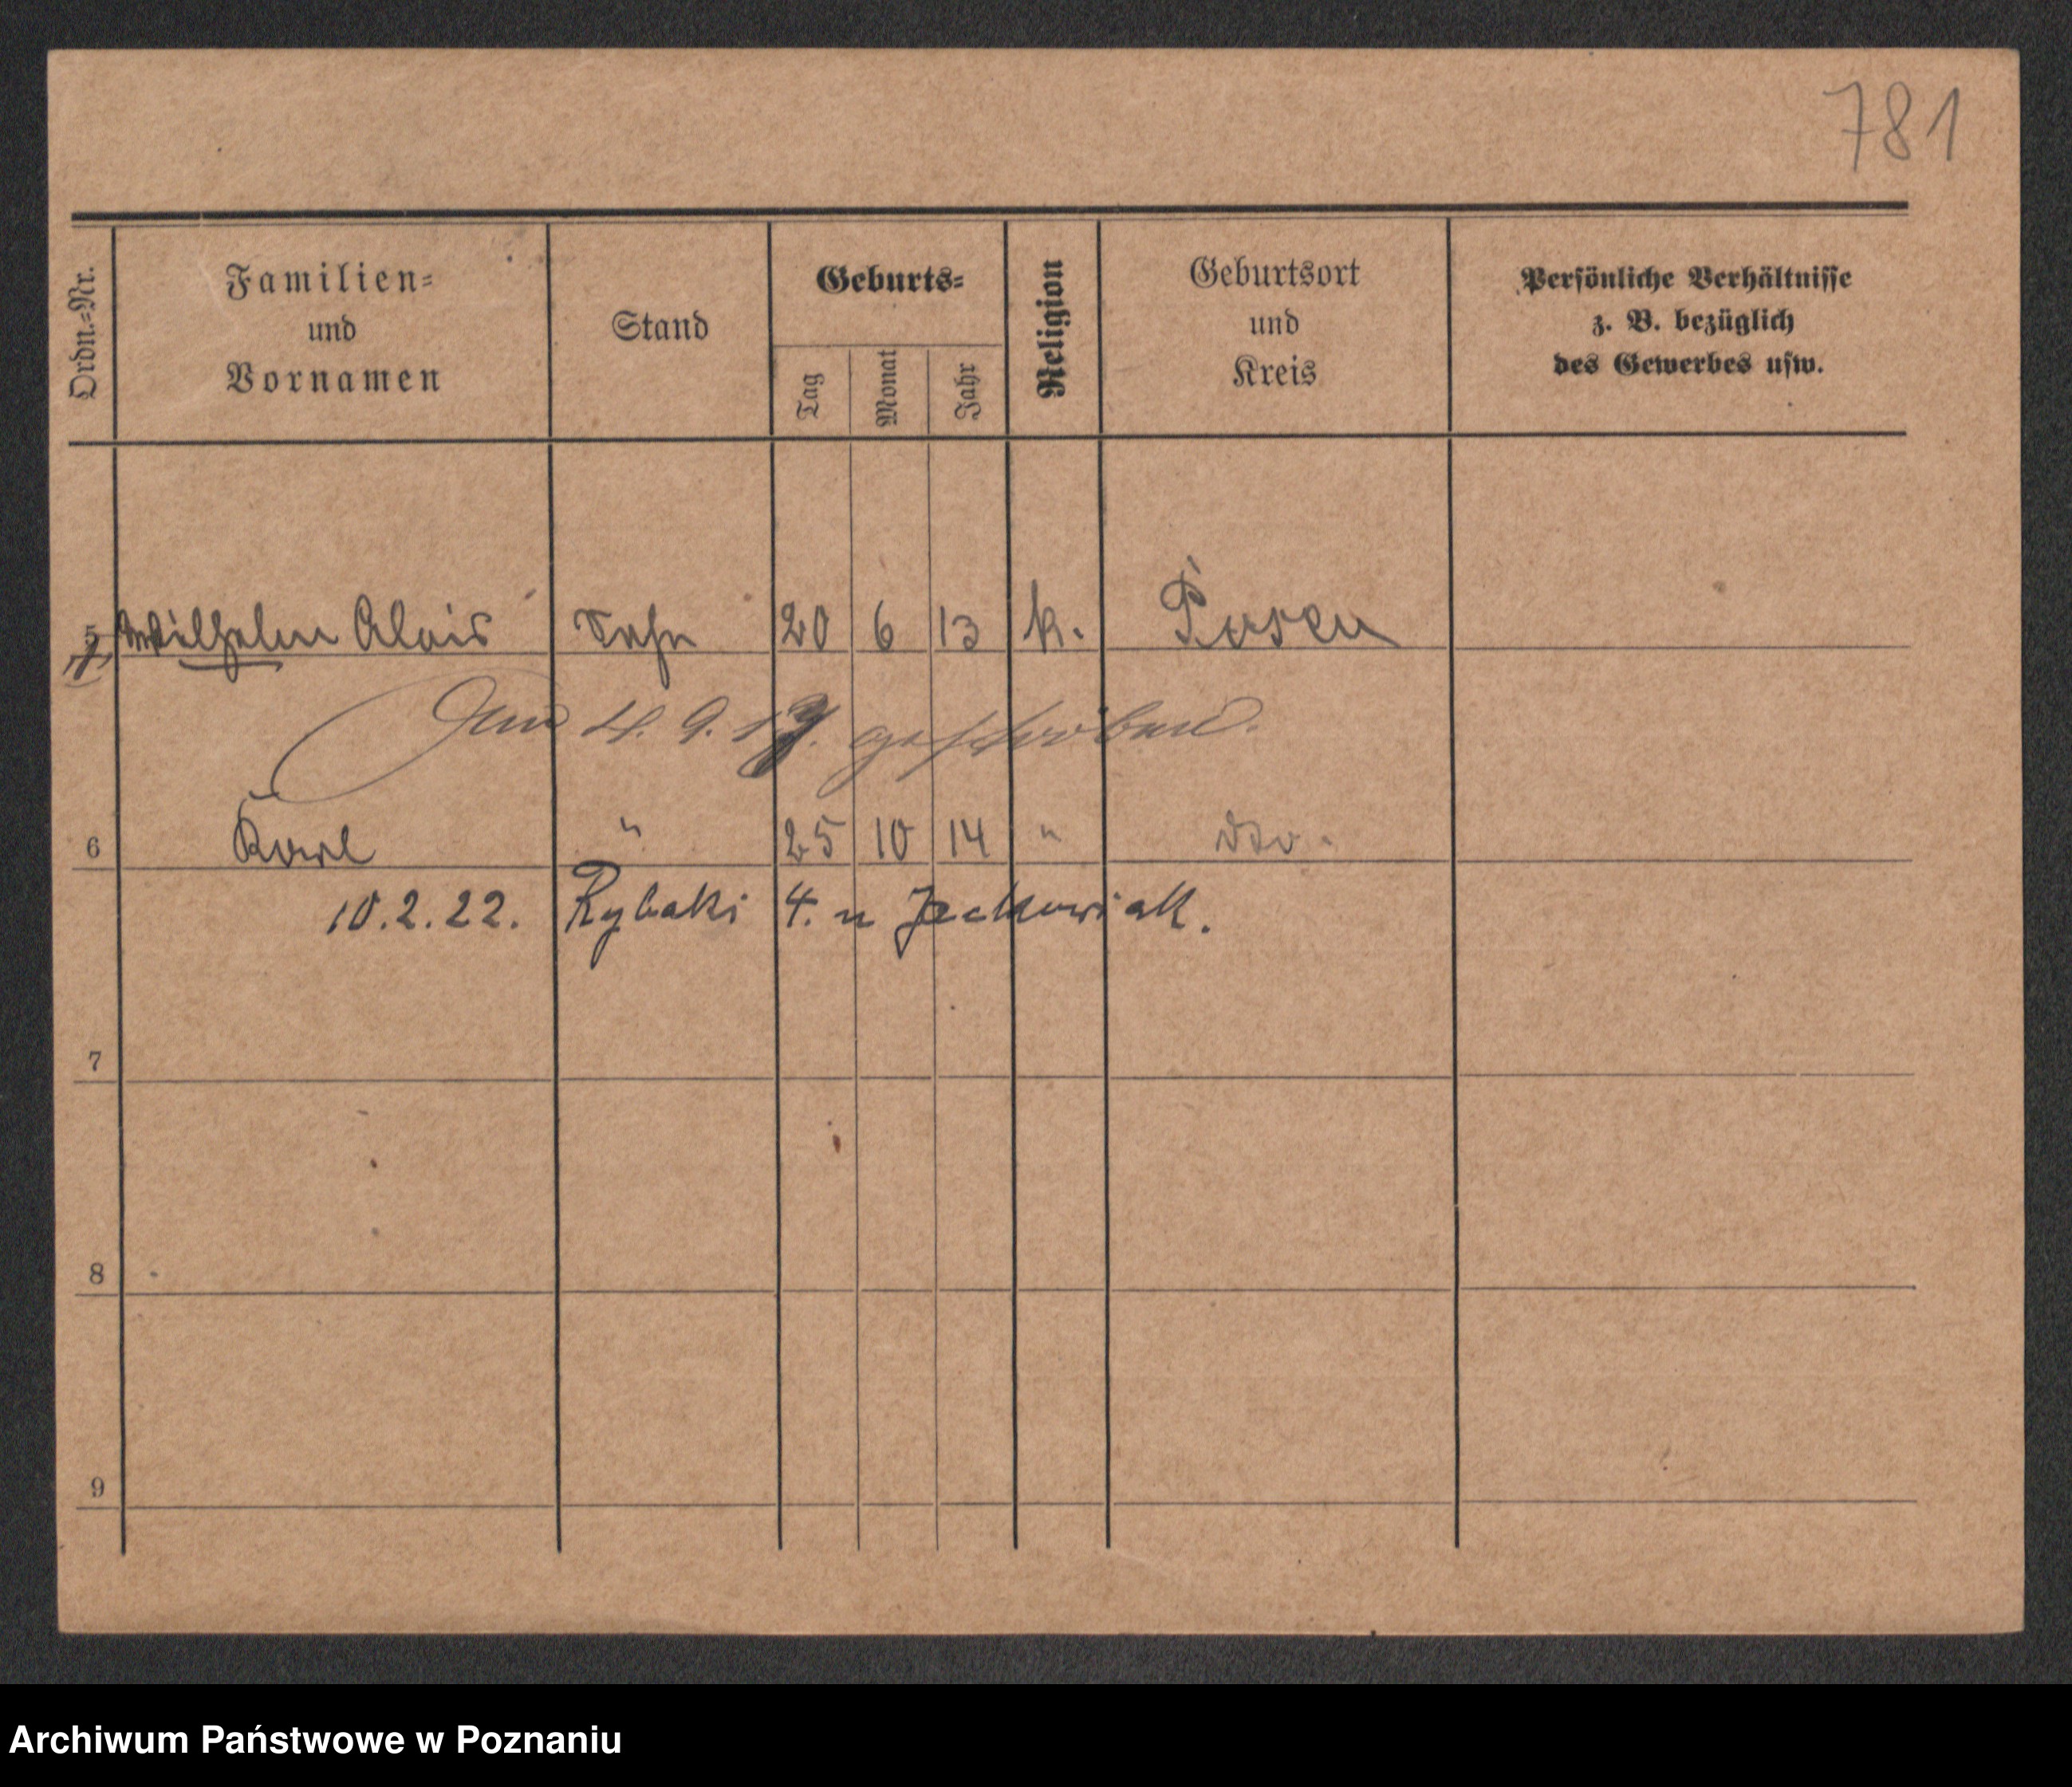 781
Ordn.-Nr.
Familien-
und
Vornamen
Stand
Geburts-
Tag
Monat
Jahr
Religion
Geburtsort
und
Kreis
Persönliche Verhältnisse
z. B. bezüglich
des Gewerbes usw.
5 Wilhelm Alois Sohn 20 6 13 k. Posen
Am 4. 9. 17. gestorben.
6 Karl " 25 10 14 " dto.
10.2.22. Rybaki 4. u Jackowiak.
7
8
9
Archiwum Państwowe w Poznaniu